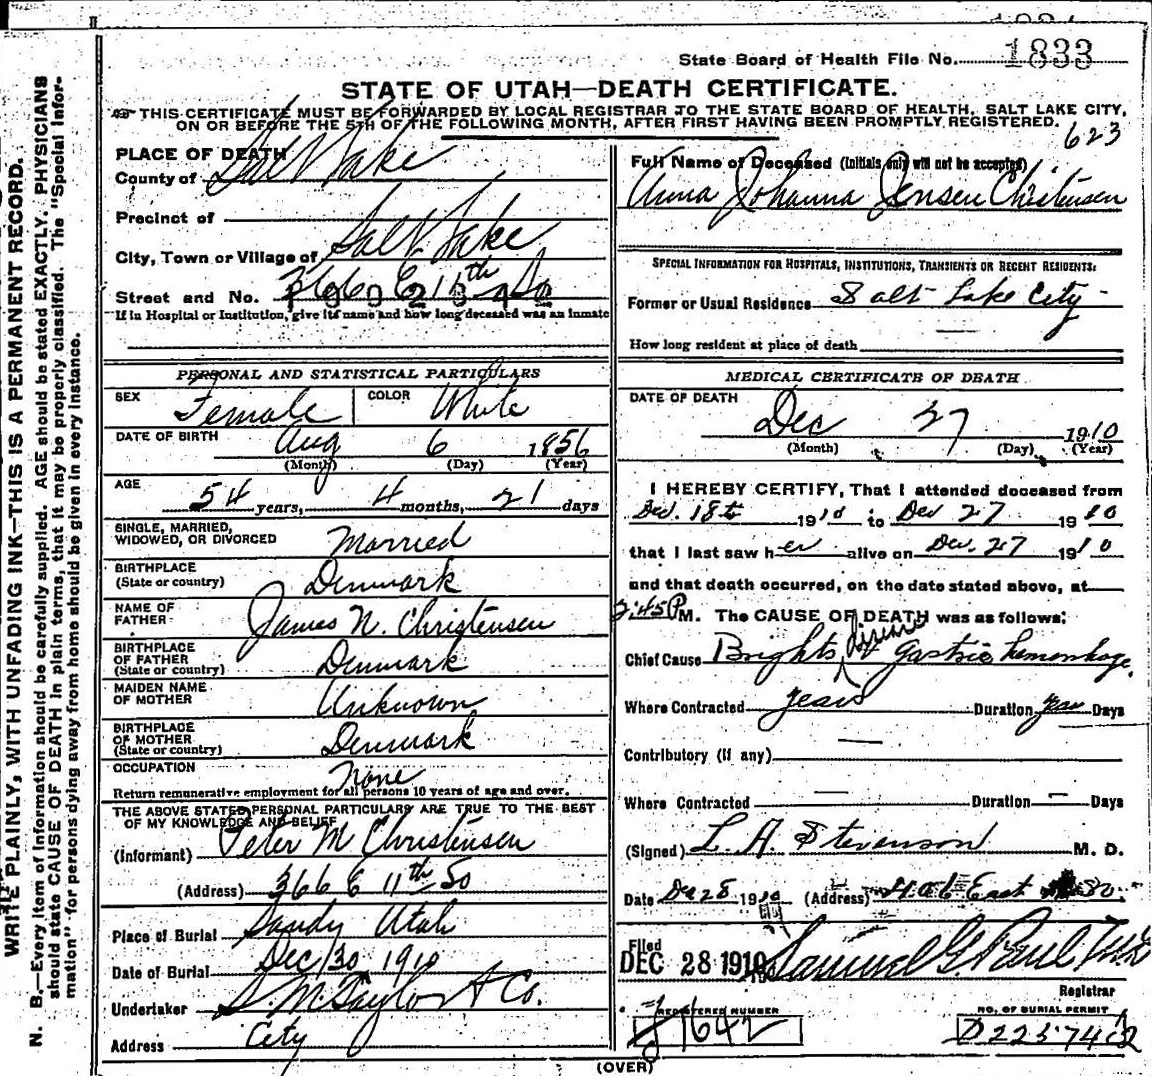 State Board of Health File No. 1833
STATE OF UTAH—DEATH CERTIFICATE.
THIS CERTIFICATE MUST BE FORWARDED BY LOCAL REGISTRAR TO THE STATE BOARD OF HEALTH, SALT LAKE CITY,
ON OR BEFORE THE 5TH OF THE FOLLOWING MONTH, AFTER FIRST HAVING BEEN PROMPTLY REGISTERED.
623
WRITE PLAINLY, WITH UNFADING INK—THIS IS A PERMANENT RECORD.
N. B.—Every item of information should be carefully supplied. AGE should be stated EXACTLY. PHYSICIANS
should state CAUSE OF DEATH in plain terms, that it may be properly classified. The "Special Infor-
mation" for persons dying away from home should be given in every instance.
PLACE OF DEATH
County of Salt Lake
Precinct of
City, Town or Village of Salt Lake
Street and No. 366 E 11th So
If in Hospital or Institution, give its name and how long deceased was an inmate
PERSONAL AND STATISTICAL PARTICULARS
SEX Female COLOR White
DATE OF BIRTH Aug 6 1856
(Month) (Day) (Year)
AGE
54 years, 4 months, 21 days
SINGLE, MARRIED,
WIDOWED, OR DIVORCED Married
BIRTHPLACE
(State or country) Denmark
NAME OF
FATHER James N. Christensen
BIRTHPLACE
OF FATHER
(State or country) Denmark
MAIDEN NAME
OF MOTHER Unknown
BIRTHPLACE
OF MOTHER
(State or country) Denmark
OCCUPATION None
Return remunerative employment for all persons 10 years of age and over.
THE ABOVE STATED PERSONAL PARTICULARS ARE TRUE TO THE BEST
OF MY KNOWLEDGE AND BELIEF
(Informant) Peter M Christensen
(Address) 366 E 11th So
Place of Burial Sandy Utah
Date of Burial Dec 30 1910
Undertaker S. M. Taylor & Co.
Address City
Full Name of Deceased (Initials only will not be accepted)
Anna Johanna Jensen Christensen
SPECIAL INFORMATION FOR HOSPITALS, INSTITUTIONS, TRANSIENTS OR RECENT RESIDENTS:
Former or Usual Residence Salt Lake City
How long resident at place of death
MEDICAL CERTIFICATE OF DEATH
DATE OF DEATH
Dec 27 1910
(Month) (Day) (Year)
I HEREBY CERTIFY, That I attended deceased from
Dec. 18th 1910 to Dec 27 1910
that I last saw her alive on Dec. 27 1910
and that death occurred, on the date stated above, at
2:45 P M. The CAUSE OF DEATH was as follows:
Chief Cause Brights disease & Gastric hemorrhage.
Where Contracted years Duration years Days
Contributory (if any)
Where Contracted Duration Days
(Signed) L. A. Stevenson M. D.
Date Dec 28 1910 (Address) East So.
Filed
DEC 28 1910 Samuel G. Paul
Registrar
REGISTERED NUMBER
1642
NO. OF BURIAL PERMIT
(OVER)